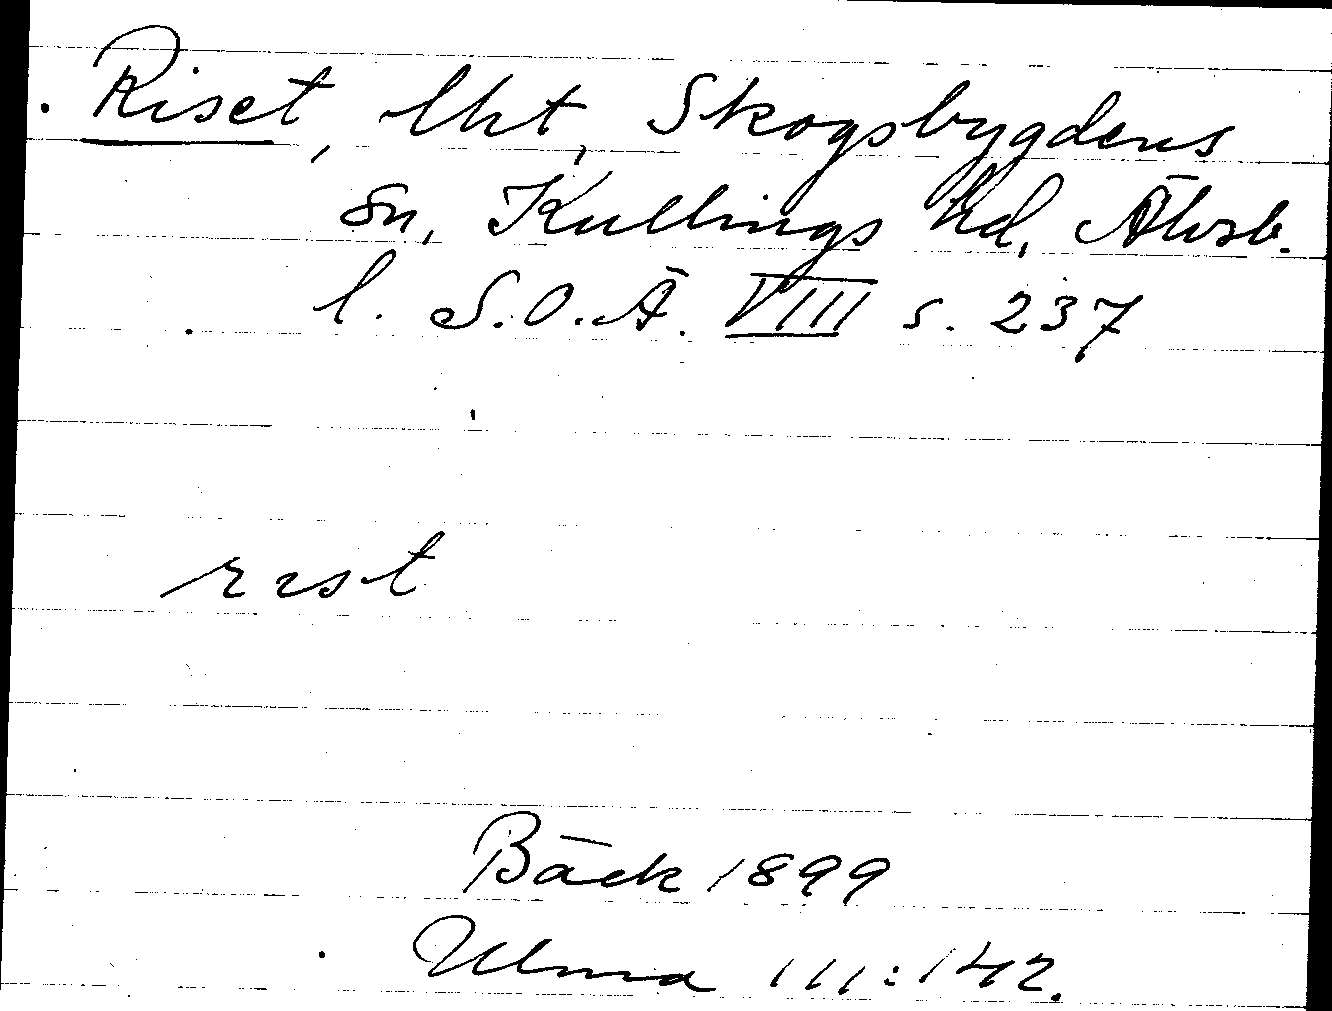 Riset, lht, Skogsbygdens
sn, Kullings hd, Älvsb.
l. S.O.Ä. VIII s. 237
rist
Bäck 1899
Ulma 111:142.